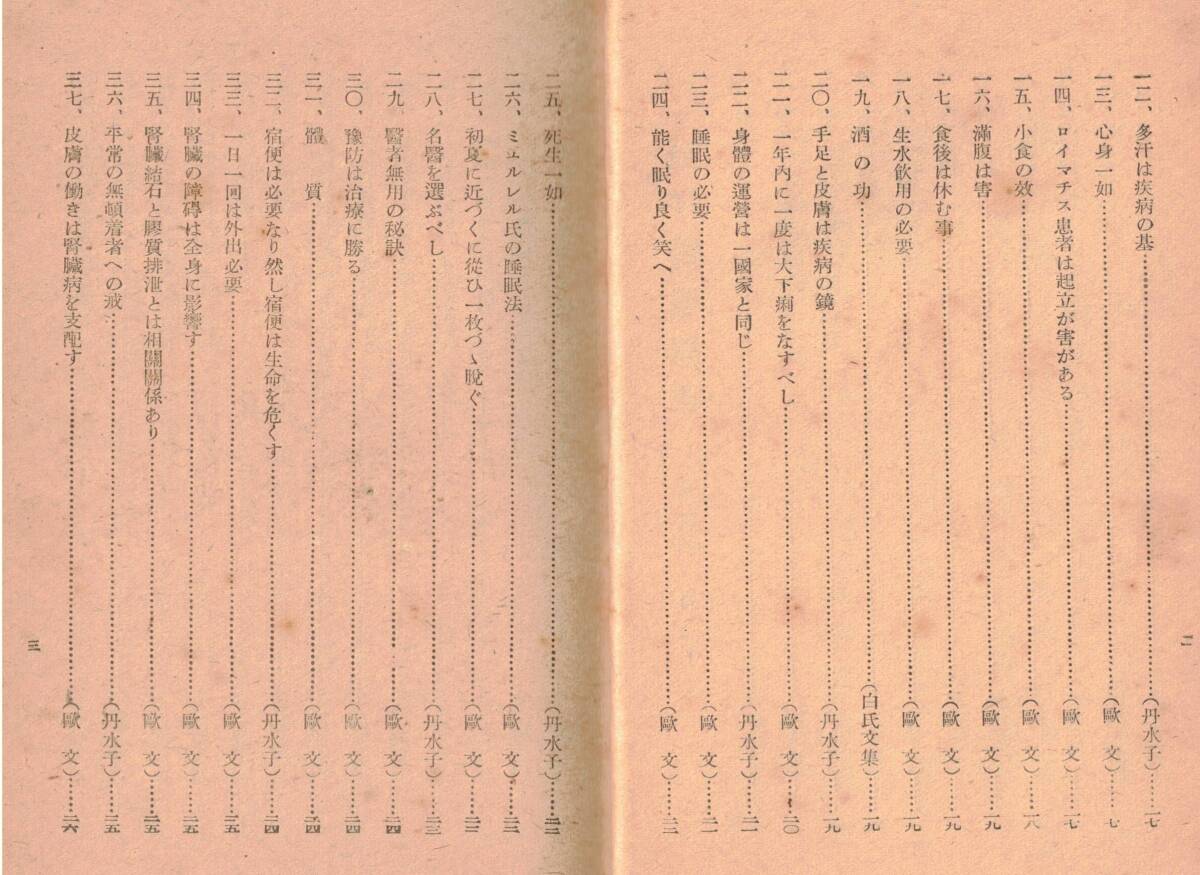 一二、多汗は疾病の基……（丹水子）……一七
一三、心身一如……（歐文）……一七
一四、ロイマチス患者は起立が害がある……（歐文）……一七
一五、小食の效……（歐文）……一八
一六、滿腹は害……（歐文）……一九
一七、食後は休む事……（歐文）……一九
一八、生水飮用の必要……（歐文）……一九
一九、酒の功……（白氏文集）……一九
二〇、手足と皮膚は疾病の鏡……（丹水子）……一九
二一、一年內に一度は大下痢をなすべし……（歐文）……二〇
二二、身體の運營は一國家と同じ……（丹水子）……二一
二三、睡眠の必要……（歐文）……二一
二四、能く眠り良く笑へ……（歐文）……二二
二
二五、死生一如……（丹水子）……二二
二六、ミュルレル氏の睡眠法……（歐文）……二二
二七、初夏に近づくに從ひ一枚づゝ脫ぐ……（歐文）……二三
二八、名醫を選ぶべし……（丹水子）……二三
二九、醫者無用の秘訣……（歐文）……二四
三〇、豫防は治療に勝る……（歐文）……二四
三一、體質……（歐文）……二四
三二、宿便は必要なり然し宿便は生命を危くす……（丹水子）……二四
三三、一日一回は外出必要……（歐文）……二五
三四、腎臟の障碍は全身に影響す……（歐文）……二五
三五、腎臟結石と膠質排泄とは相關關係あり……（歐文）……二五
三六、平常の無頓着者への戒……（丹水子）……二五
三七、皮膚の働きは腎臟病を支配す……（歐文）……二六
三